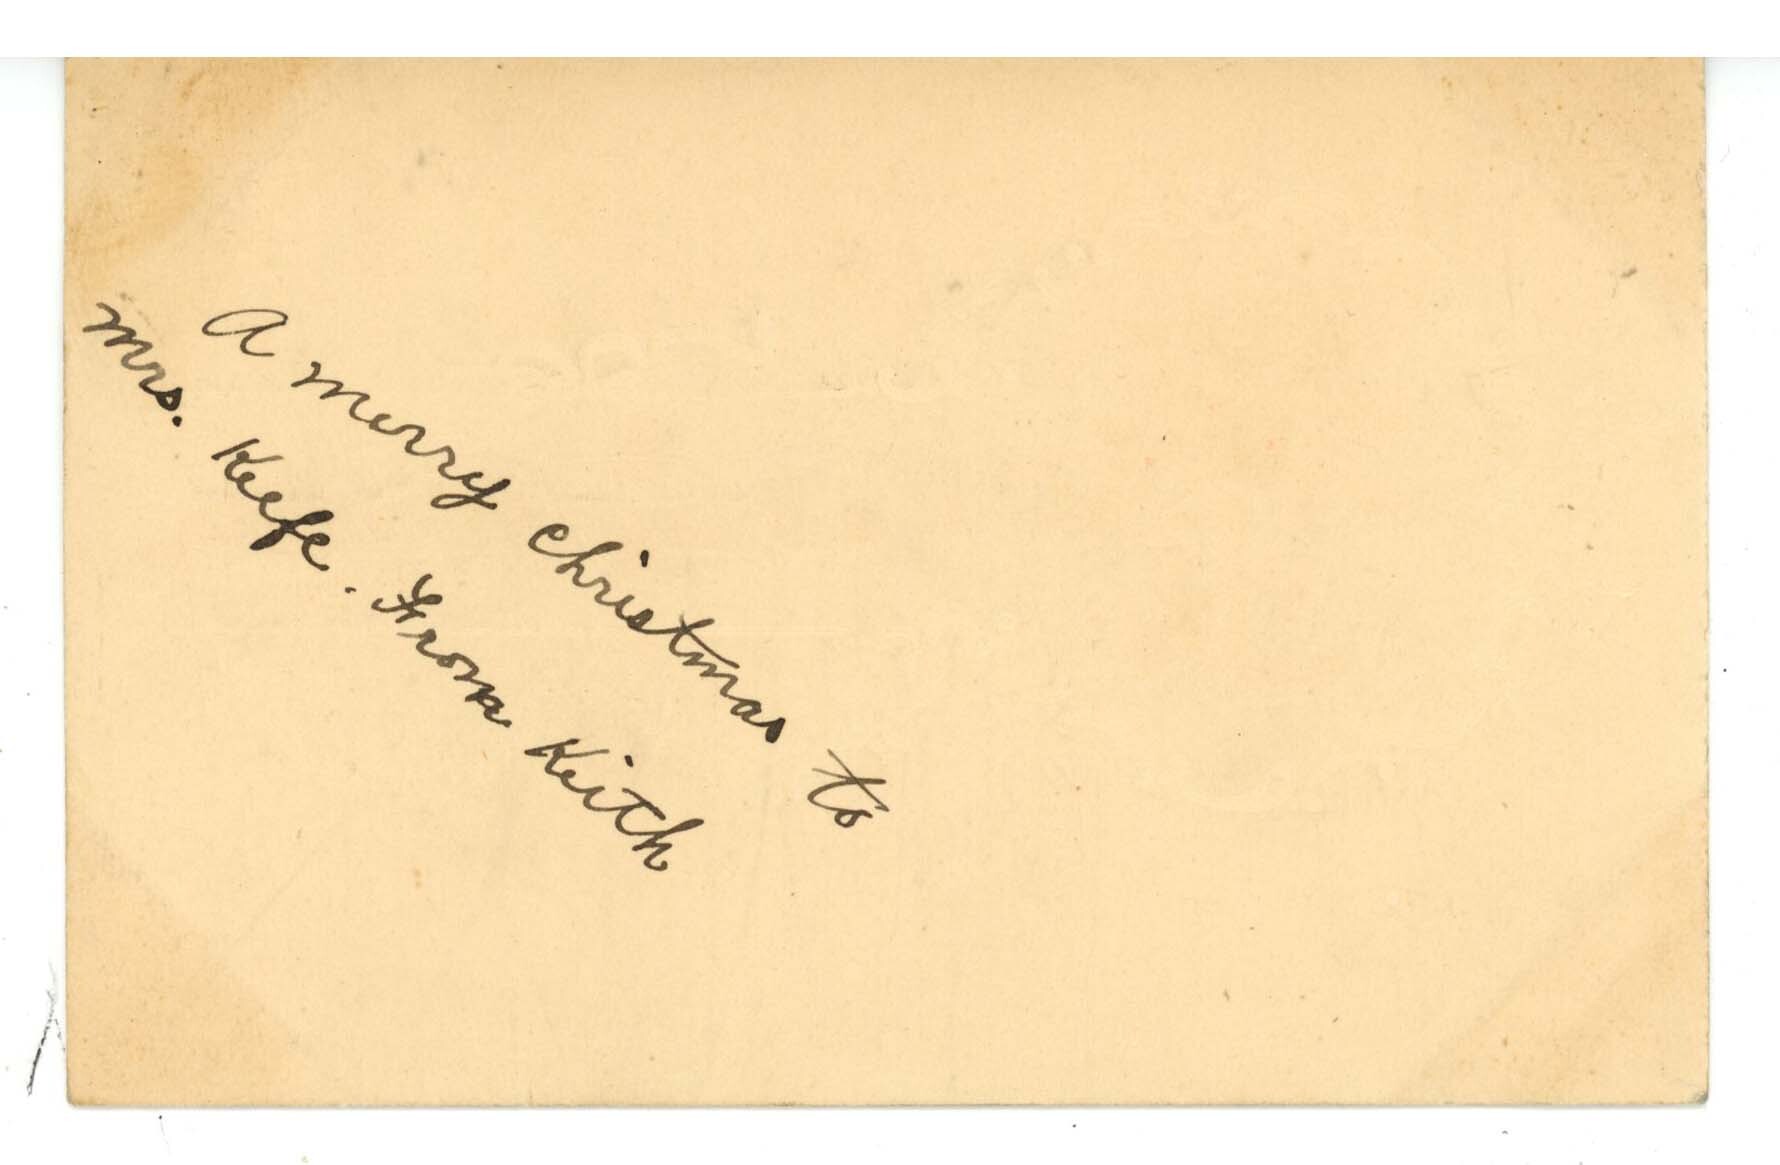 A merry christmas to
Mrs. Keefe. From Keith